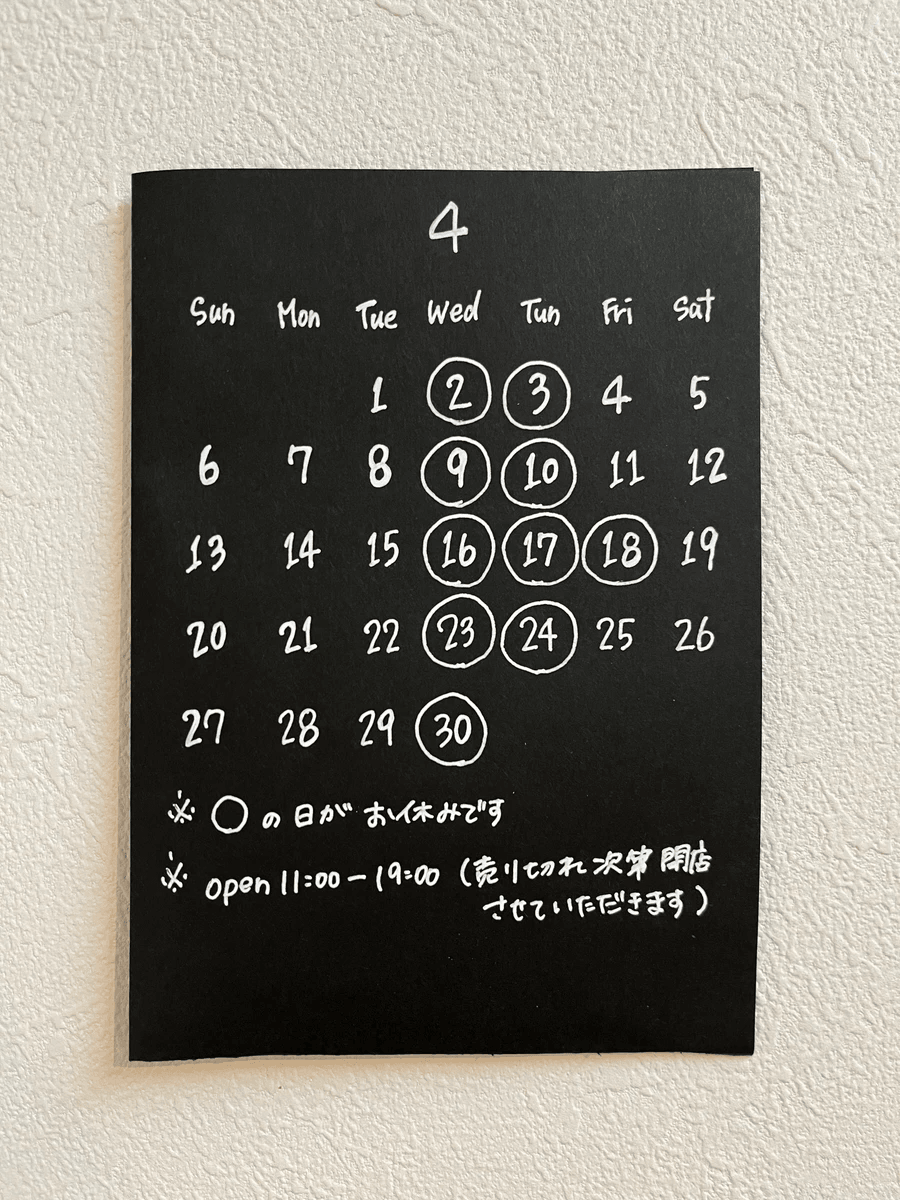 4
Sun Mon Tue Wed Tun Fri Sat
1 2 3 4 5
6 7 8 9 10 11 12
13 14 15 16 17 18 19
20 21 22 23 24 25 26
27 28 29 30
※ ○の日がお休みです
※ open 11:00-19:00 (売り切れ次第閉店
させていただきます)